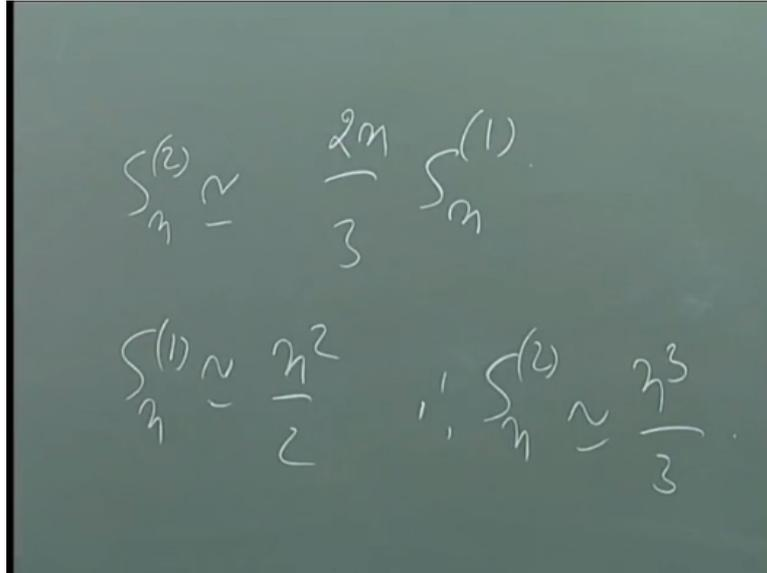 S_n^(2) ≃ 2n/3 S_n^(1).
S_n^(1) ≃ n^2/2 ∴ S_n^(2) ≃ n^3/3.